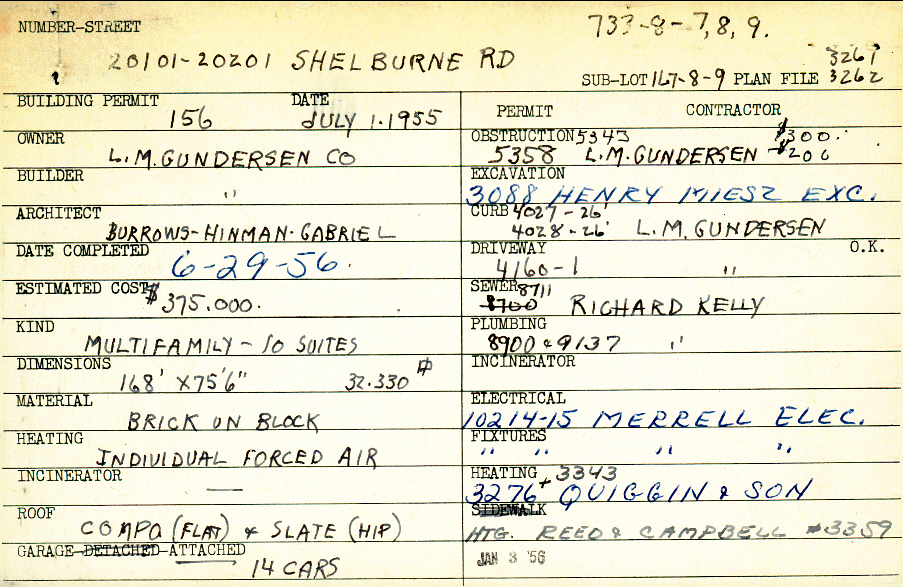 NUMBER-STREET
733-8-7,8,9.
20101-20201 SHELBURNE RD
3261
SUB-LOT 167-8-9 PLAN FILE 3262
BUILDING PERMIT DATE
156 JULY 1.1955
OWNER
L.M.GUNDERSEN CO
BUILDER
"
ARCHITECT
BURROWS-HINMAN-GABRIEL
DATE COMPLETED
6-29-56.
ESTIMATED COST
$375.000.
KIND
MULTIFAMILY - 10 SUITES
DIMENSIONS
168' X75'6" 32.330
MATERIAL
BRICK ON BLOCK
HEATING
INDIVIDUAL FORCED AIR
INCINERATOR
—
ROOF
COMPO (FLAT) & SLATE (HIP)
GARAGE-DETACHED-ATTACHED
14 CARS
PERMIT CONTRACTOR
OBSTRUCTION 5343 $300.
5358 L.M.GUNDERSEN $200
EXCAVATION
3088 HENRY MIESZ EXC.
CURB 4027-26'
4028-26' L.M.GUNDERSEN
DRIVEWAY O.K.
4160-1 "
SEWER 8711
8700 RICHARD KELLY
PLUMBING
8900 & 9137 "
INCINERATOR
ELECTRICAL
10214-15 MERRELL ELEC.
FIXTURES
" " " "
HEATING + 3343
3276 QUIGGIN & SON
SIDEWALK
HTG. REED & CAMPBELL #3359
JAN 3 '56